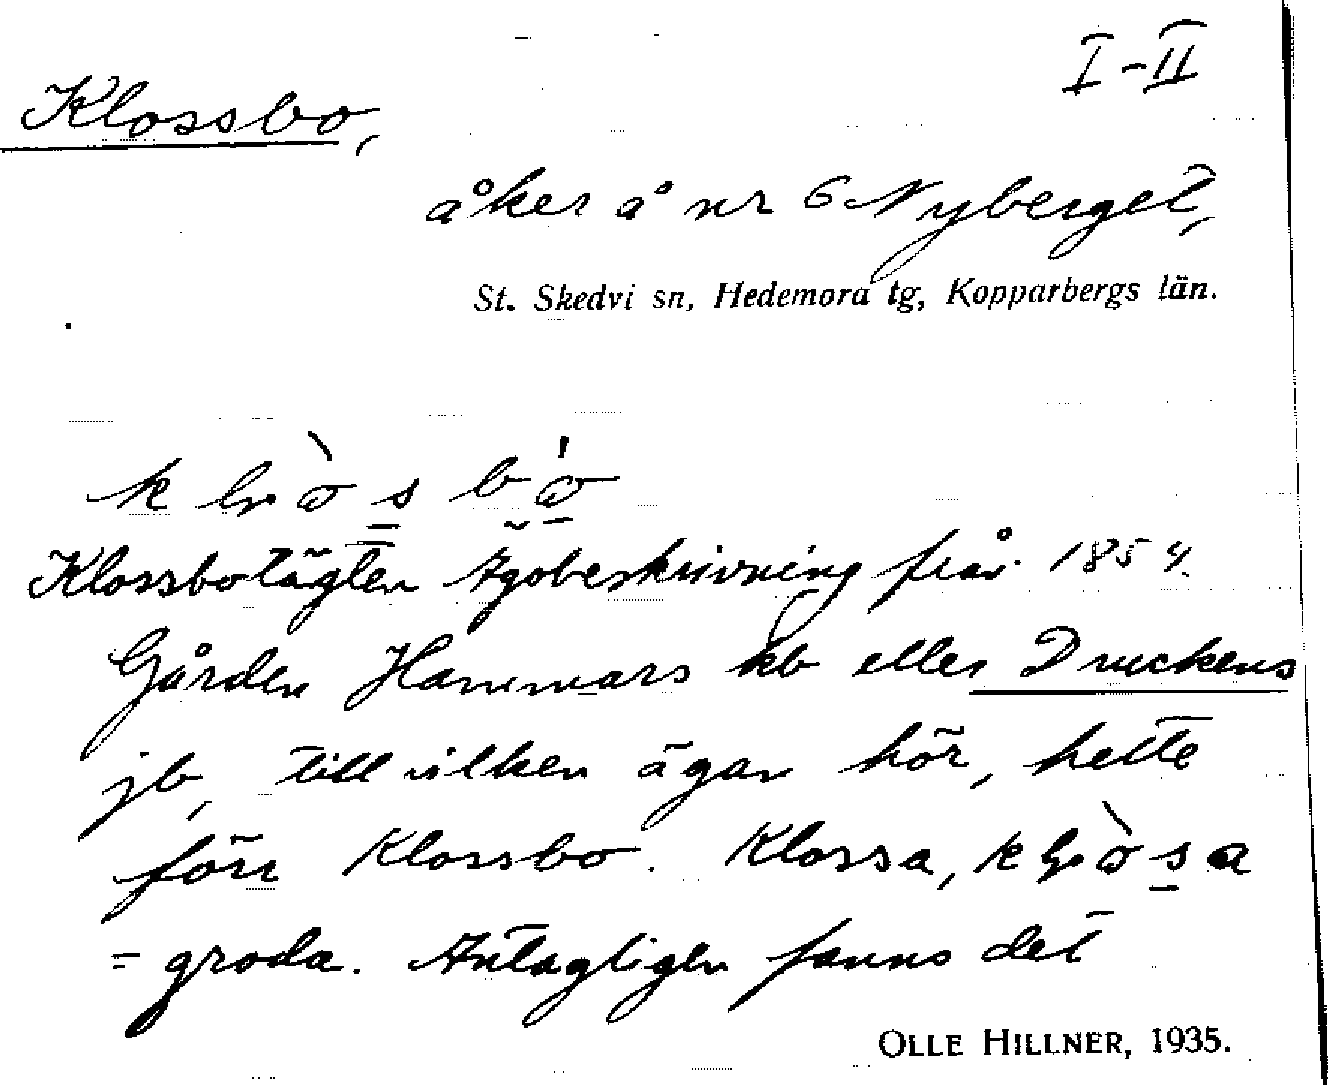 I-II
Klossbo,
åker å nr 6 Nyberget,
St. Skedvi sn, Hedemora tg, Kopparbergs län.
Klossbotägten Ägobeskrivning från 1854.
Gården Hammars kb eller Druckens
jb, till vilken ägan hör, hette
förr Klossbo. Klossa,
= groda. Antagligen fanns det
OLLE HILLNER, 1935.